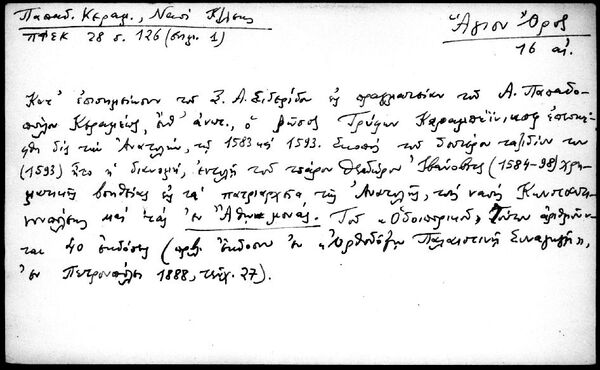 Παπαδ. Κεραμ., Ναοὶ Κ/λεως
Ἅγιον Ὄρος
ΠΦΣΚ 28 σ. 126 (σημ. 1)
16 αἰ.
Κατ' ἐπισημείωσιν τοῦ Ξ. Α. Σιδερίδου εἰς πραγματείαν τοῦ Α. Παπαδο-
πούλου Κεραμέως, ἔνθ' ἀνωτ., ὁ ῥῶσος Τρύφων Καραμπέϊνικωφ ἐπεσκέ-
φθη δὶς τὴν Ἀνατολήν, τῷ 1583 καὶ 1593. Σκοπὸς τοῦ δευτέρου ταξιδίου του
(1593) ἦτο ἡ διανομή, ἐντολῇ τοῦ τσάρου Θεοδώρου Ἰβάνοβιτς (1584-98) χρη-
ματικῆς βοηθείας εἰς τὰ πατριαρχεῖα τῆς Ἀνατολῆς, τοὺς ναοὺς Κωνσταντι-
νουπόλεως καὶ τὰς ἐν Ἄθῳ μονάς. Τοῦ «Ὁδοιπορικοῦ» τούτου ἀριθμοῦν-
ται 40 ἐκδόσεις (πρβλ. ἔκδοσιν ἐν «Ὀρθοδόξῳ Παλαιστινῇ Συναγωγῇ»,
ἐν Πετρουπόλει 1888, τεῦχ. 27).